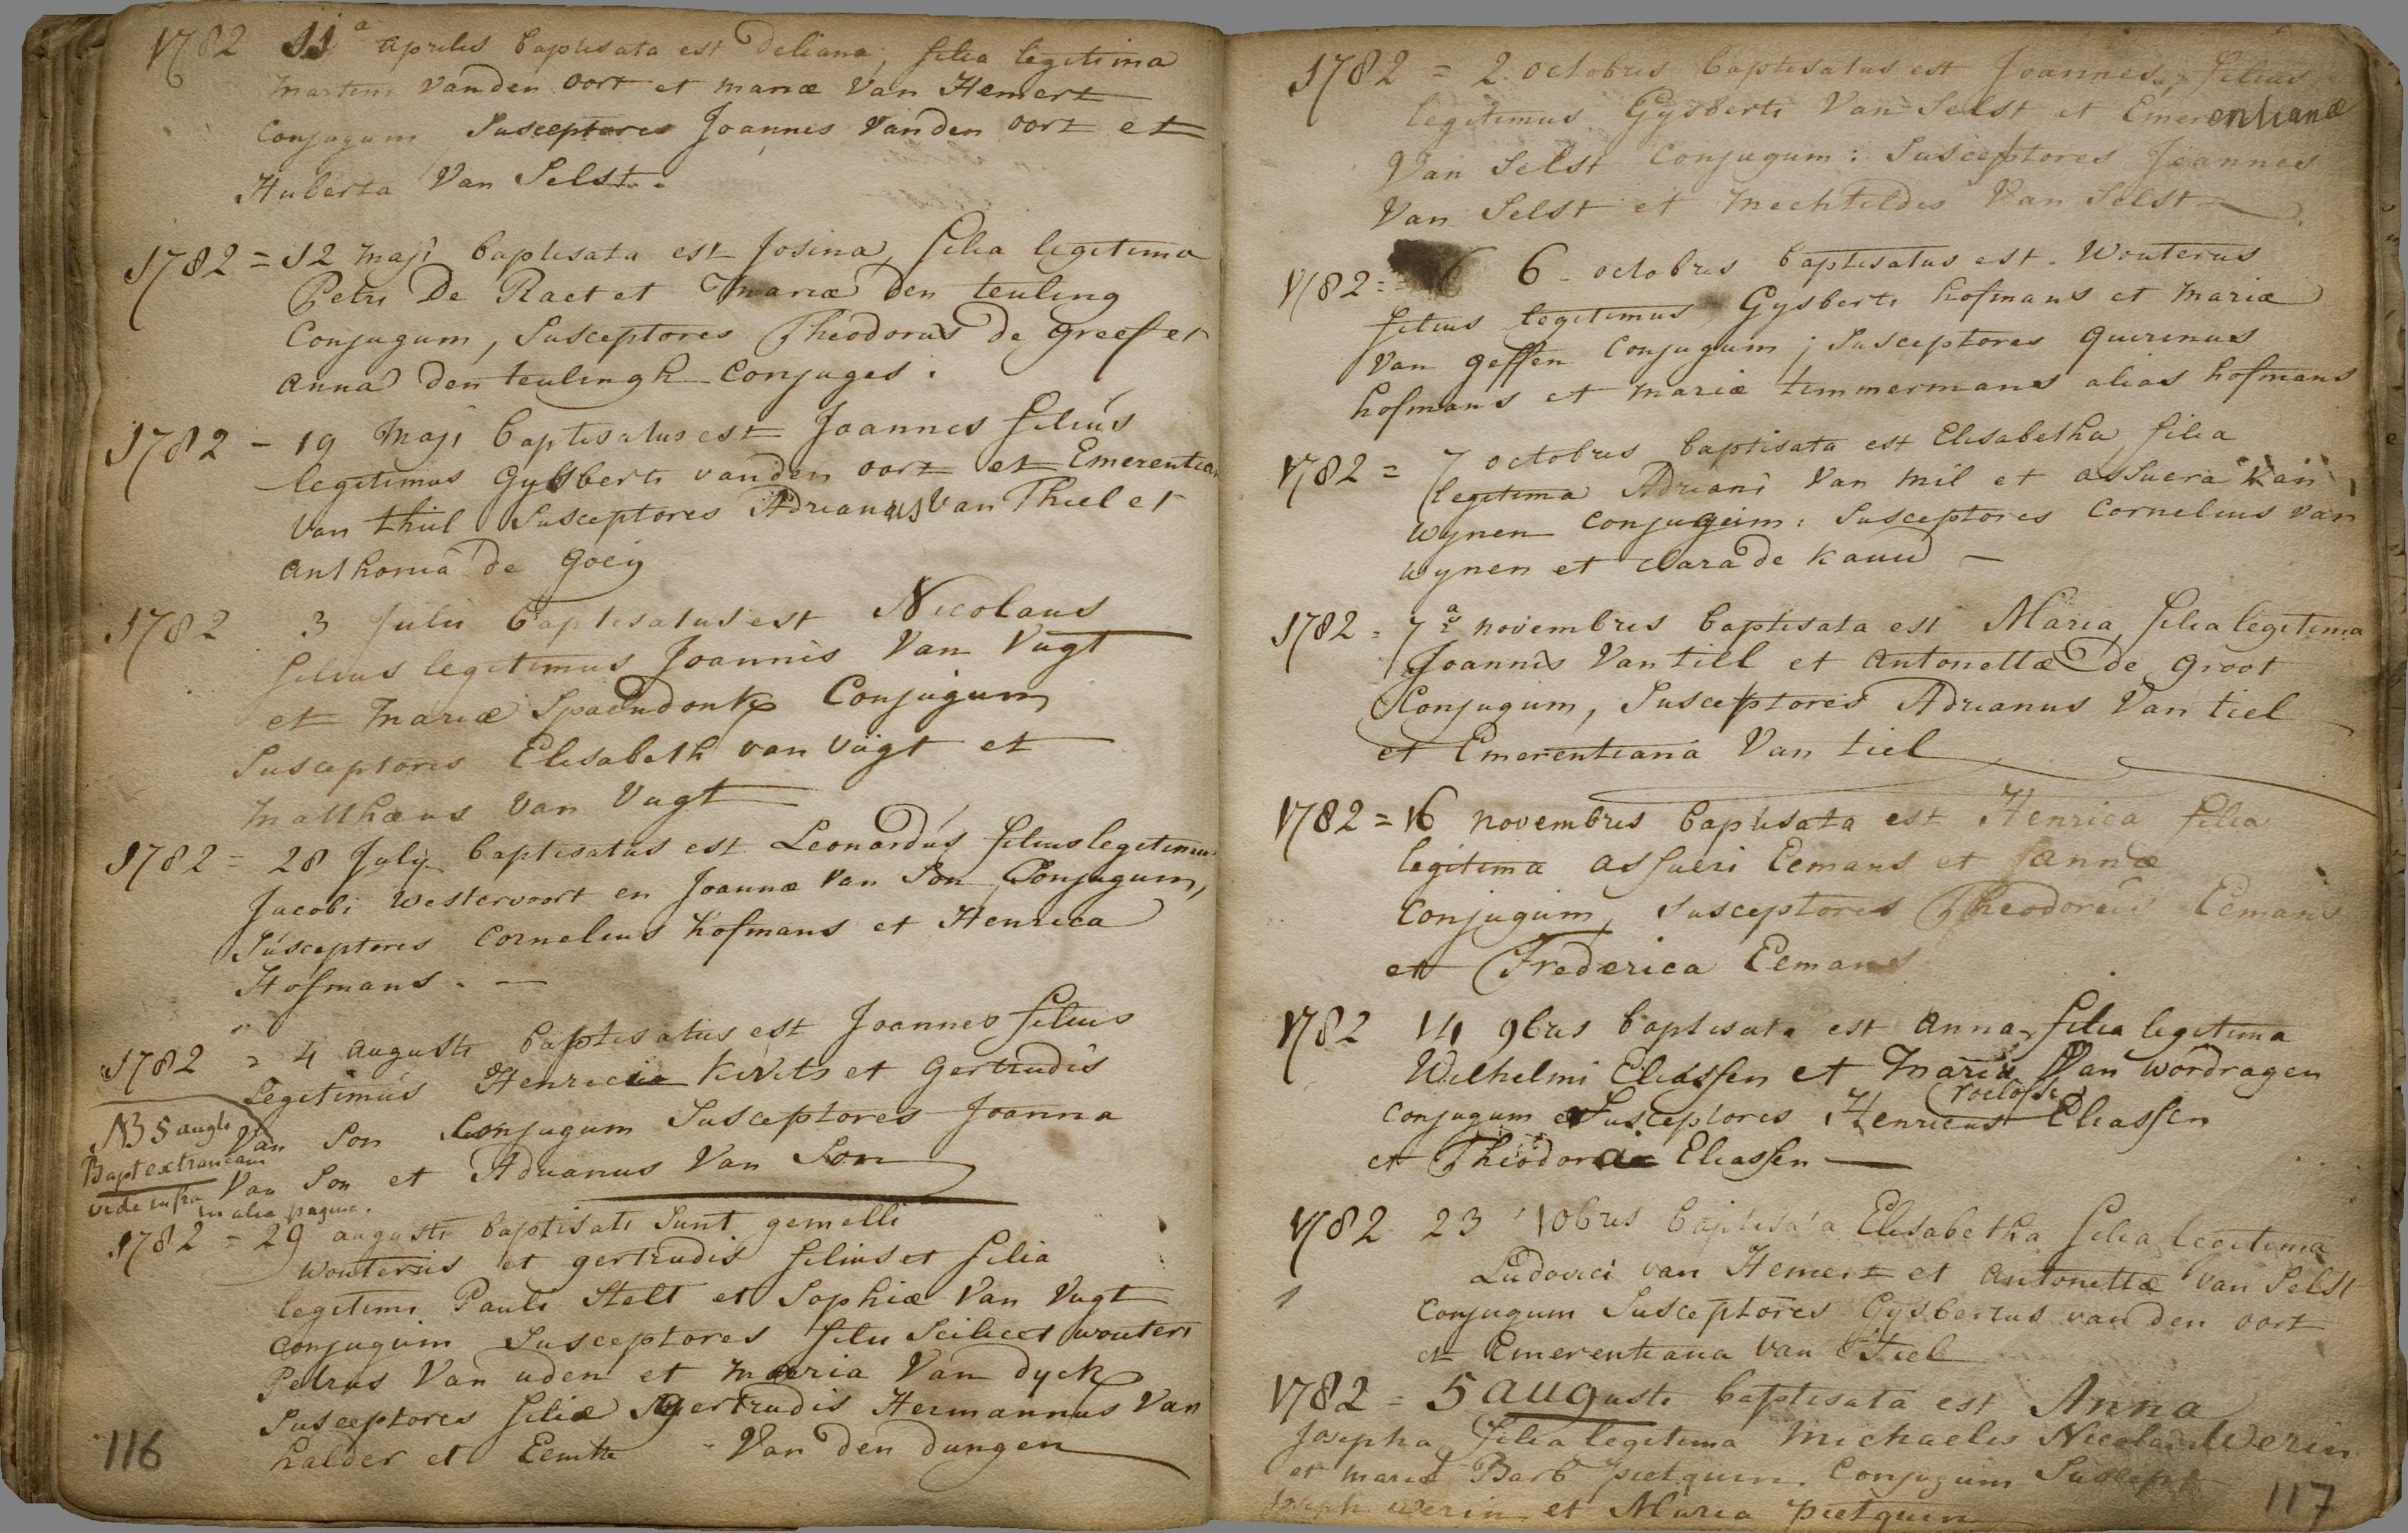 1782 11a Aprilis baptisata est Deliana, filia legitima
Martini Vanden oort et mariæ Van Hemert
Conjugum Susceptores Joannes Vanden oort et
Huberta Van Selst.
1782 = 12 maji baptisata est Josina, filia legitima
Petri De Raet et Mariæ Den teuling
Conjugum, Susceptores Theodorus de greef et
anna den teulingh Conjuges.
1782 - 19 Maji baptisatus est Joannes filius
legitimus Gysberti vanden oort et Emerentia
Van thiil Susceptores Adrianus Van Thiel et
anthonia de Goeij
1782 3 Julii baptisatus est Nicolaus
filius legitimus Joannis Van Vugt
et Mariæ Spaendonk Conjugum
Susceptores Elisabeth van Vugt et
Matthæus Van Vugt
1782 = 28 July baptisatus est Leonardus filius legitimus
Jacobi Westervoort en Joannæ Van Son Conjugum,
Susceptores Cornelius hofmans et Henrica
Hofmans. —
1782 = 4 augusti baptisatus est Joannes filius
Legitimus Henrici Kivits et Gertrudis
Van Son Conjugum Susceptores Joanna
Van Son et Adrianus Van Son
NB 5 augti
Bapt extraneam
vide infra
in alia pagina.
1782 = 29 augusti baptisati Sunt gemelli
Wouterus et gertrudis filius et filia
legitimi Pauli Stelt et Sophiæ Van Vugt
Conjugum Susceptores filii Scilicet wouteri
Petrus Van uden et maria Van dyck
Susceptores filiæ gertrudis Hermannus Van
halder et Eemke Van Den dungen
116
1782 = 2 octobris baptisatus est Joannes, filius
legitimus Gysberti Van Selst et Emerentianæ
Van Selst Conjugum: Susceptores Joannes
Van Selst et Mechtildis Van Selst
1782 = 6 octobris baptisatus est Wouterus
filius legitimus Gysberti hofmans et Mariæ
Van geffen Conjugum; Susceptores Quirinus
hofmans et Mariæ timmermans alias hofmans
1782 = 7 octobris baptisata est Elisabetha filia
legitima Adriani Van Mil et assuera Van
wynen Conjugum: Susceptores Cornelius Van
wynen et Clara de Kauw —
1782 = 7a novembris baptisata est Maria filia legitima
Joannis Van till et Antonettæ De Groot
Conjugum, Susceptores Adrianus Van tiel
et Emerentiana Van tiel
1782 = 16 novembris baptisata est Henrica filia
legitima assueri Eemans et Jannæ
Conjugum, Susceptores Theodorus Eemans
et Frederica Eemans
1782 14 9bris baptisata est anna filia legitima
Wilhelmi Eliassen et Maria Van wordragen
Conjugum Susceptores Henricus Roeloffs Eliassen
et Theodora Eliassen —
1782 23 10bris baptisata Elisabetha filia legitima
Ludovici van Hemert et Antonettæ van Selst
Conjugum Susceptores Gysbertus van den oort
et Emerentiana van Tiel
1782 = 5 augusti baptisata est Anna
Josepha filia legitima Michaelis Nicolai Werin
et Mariæ Barb pietquin. Conjugum Suscept
Joseph Werin et Maria pietquin
117